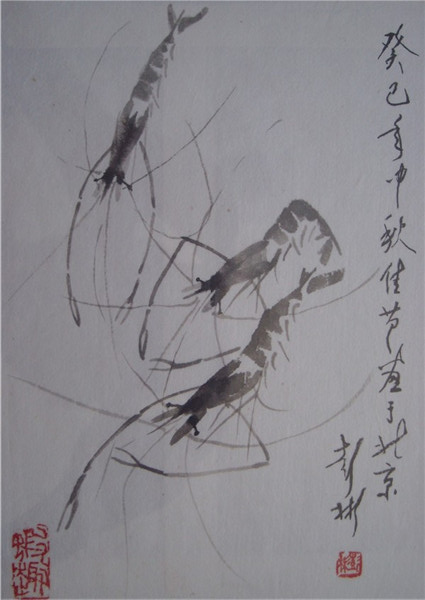 癸巳年中秋佳节画于北京
彭彬
虾趣